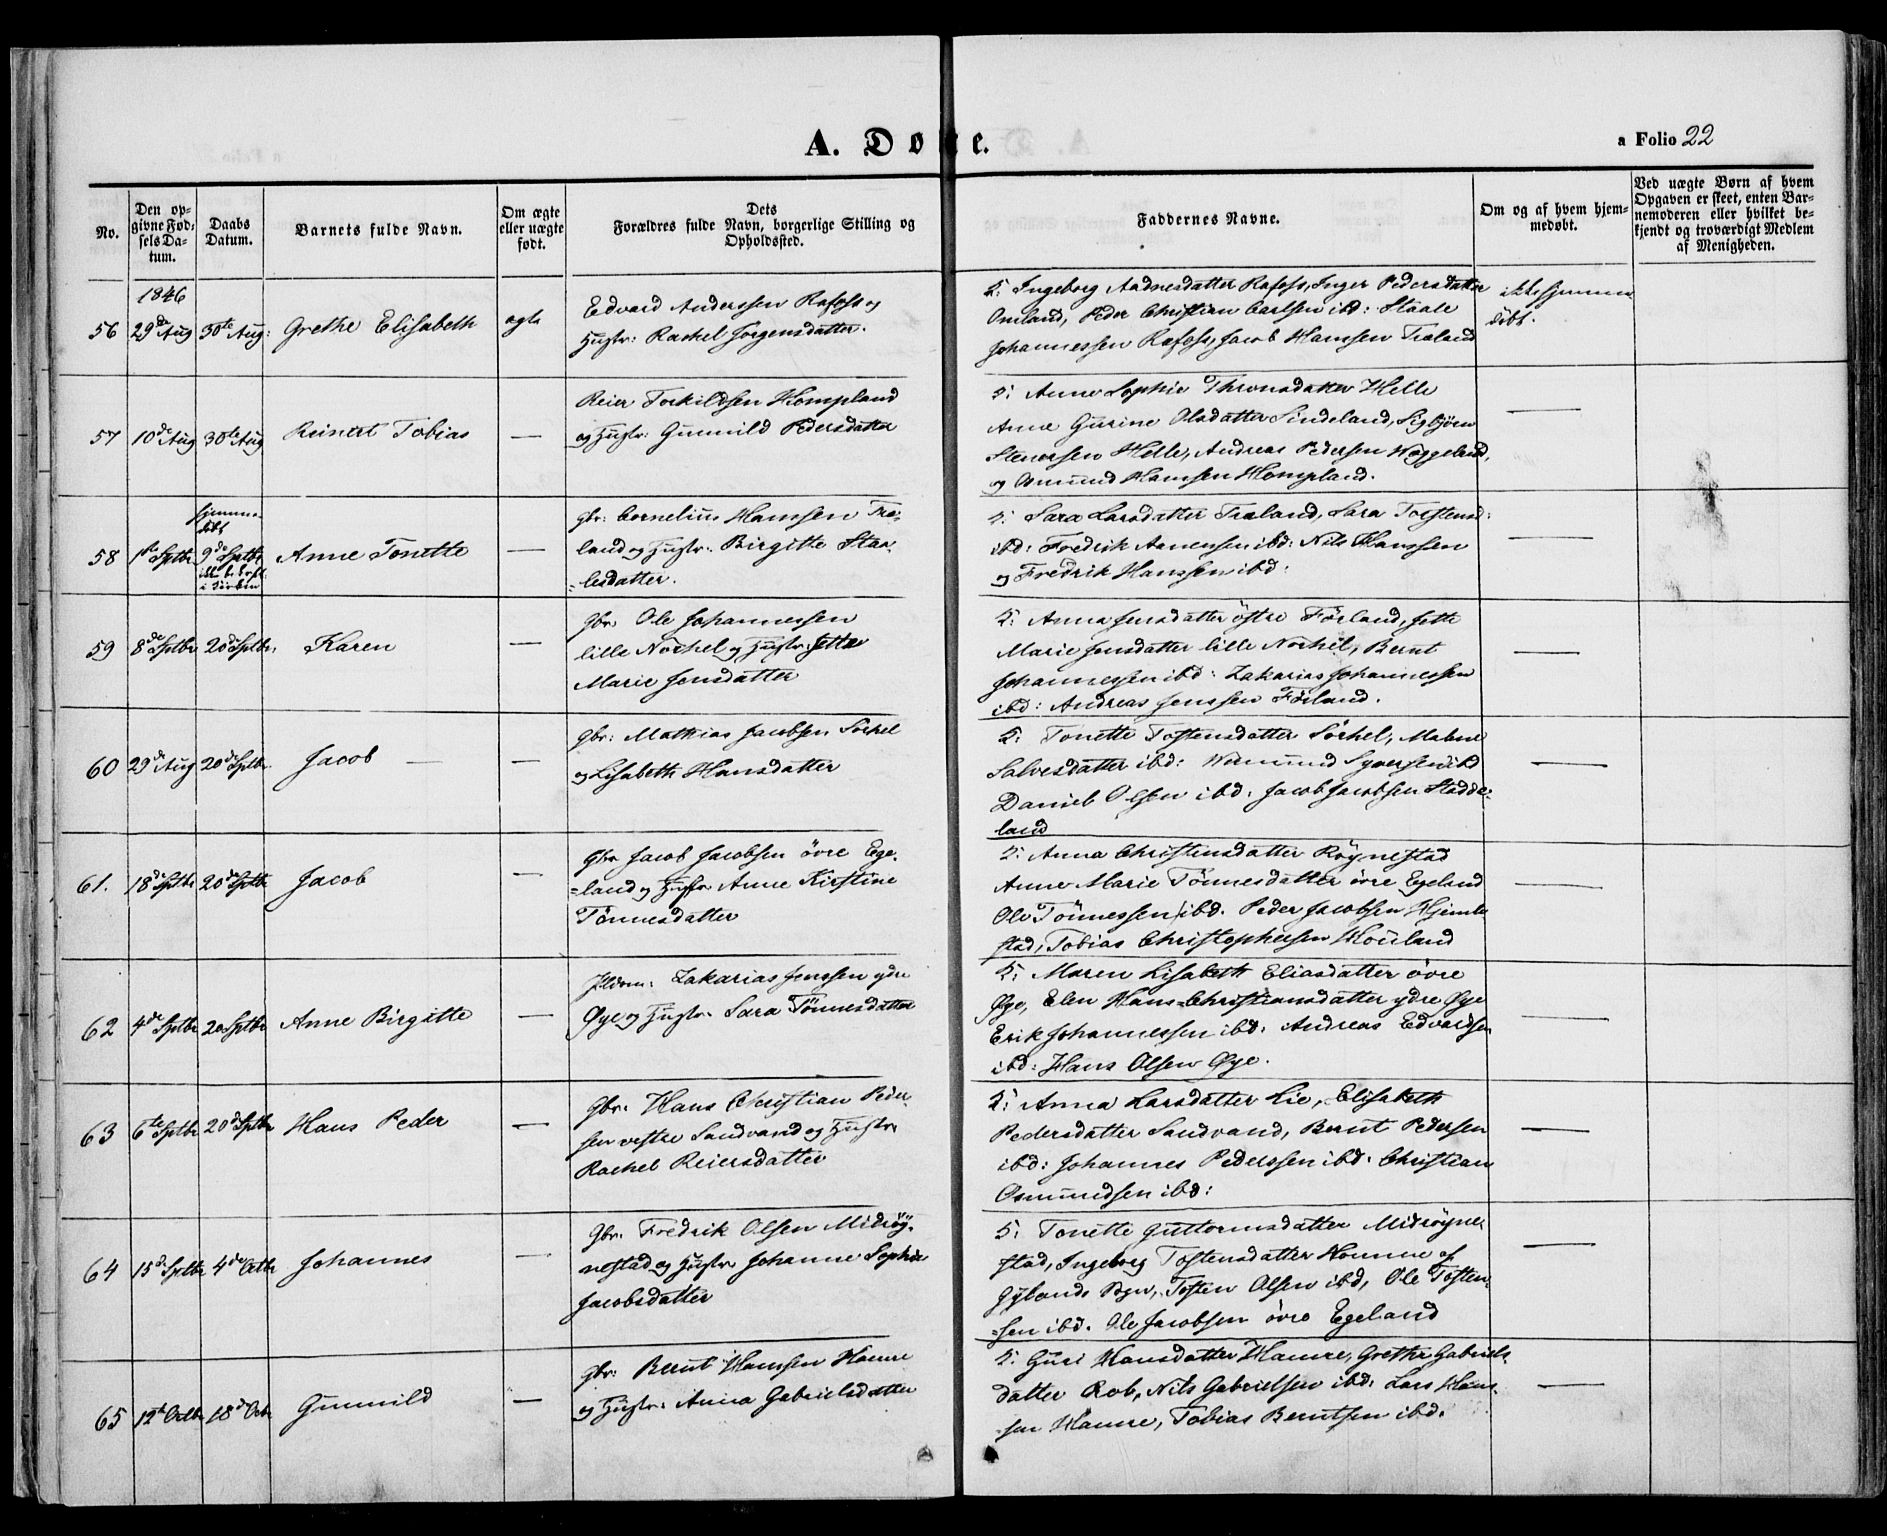 A. Døbte.
a Folio 22
No.
Den op-
givne Fød-
sels Da-
tum.
Daabs
Datum.
Barnets fulde Navn.
Om ægte
eller uægte
født.
Dets
Forældres fulde Navn, borgerlige Stilling og
Opholdssted.
Faddernes Navne.
Om og af hvem hjem-
medøbt.
Ved uægte Børn af hvem
Opgaven er skeet, enten Bar-
nemoderen eller hvilket be-
kjendt og troværdigt Medlem
af Menigheden.
1846
56 29de Aug 30te Aug: Grethe Elisabeth ægte
Edvard Anderssen Rafoss og
Hustr: Rachel Jörgensdatter.
5: Ingeborg Aadnesdatter Rafoss, Inger Pedersdatter
Omland, Peder Christian Carlsen ibd: Staale
Johannessen Rafoss, Jacob Hansen Træland
ikke hjemme
döbt.
57 10de Aug 30te Aug Reinert Tobias —
Reier Torkildsen Hompland
og Hustr: Gunnild Pedersdatter
5: Anne Sophie Thronsdatter Helle
Anne Gurine Olsdatter Sindeland, Sigbjörn
Stenersen Helle, Andreas Pedersen Hæggeland,
og Osmund Hansen Hompland.
—
58 1ste Sptbr
hjemme-
döbt
9de Sptbr
i Kirken
Anne Tonette —
gbr: Cornelius Hansen Træ-
land og Hustr: Birgitte Staa-
=lesdatter.
5: Sara Larsdatter Træland, Sara Torstensd:
ibd: Fredrik Aanensen ibd: Nils Hanssen
og Fredrik Hanssen ibd.
—
59 8de Sptbr 20de Sptbr. Karen —
gbr. Ole Johannessen
lille Nörkel og Hustr: Jette
Marie Jensdatter
5: Anna Jensdatter östre Förland, Jette
Marie Jensdatter lille Norkel, Bernt
Johannessen ibd: Zakarias Johannessen
ibd: Andreas Jenssen Förland.
—
60 29de Aug 20de Sptbr Jacob — —
gbr: Mathias Jacobsen Sörhel
og Lisabeth Hansdatter
5: Tonette Tostensdatter Sörhel, Malene
Salvesdatter ibd: Wemund Syversen ibd
Daniel Olsen ibd: Jacob Jacobsen Stadde-
land
—
61. 18de Sptbr 20de Sptbr Jacob —
gbr Jacob Jacobsen övre Ege-
=land og Hustr. Anne Kirstine
Tönnesdatter
5: Anna Christensdatter Röynestad
Anne Marie Tönnesdatter övre Egeland
Ole Tönnessen ibd. Peder Jacobsen Hjemle-
stad, Tobias Christophersen Houland
—
62 4de Sptbr 20 Sptbr Anne Birgitte —
Zakarias Jenssen ydre
Øye og Hustr. Sara Tönnesdatter
5: Maren Lisabeth Eliasdatter övre
Øye, Elen Hans-Christiansdatter ydre Øye
Erik Johannessen ibd: Andreas Edvardsen
ibd: Hans Olsen Øye.
—
63 6te Sptbr 20de Sptbr Hans Peder —
gbr. Hans Christian Peder-
sen vestre Sandvand og Hustr.
Rachel Reiersdatter
5: Anna Larsdatter Lie, Elisabeth
Pedersdatter Sandvand, Bernt Pedersen
ibd: Johannes Pederssen ibd. Christian
Osmundsen ibd:
—
64 15de Sptbr 4de Octbr Johannes —
gbr. Fredrik Olsen Midröy-
nestad og Hustr Johanne Sophie
Jacobsdatter
5. Tonette Guttormsdatter Midröyne-
stad, Ingeborg Tostensdatter Homme af
Gylands Sogn, Tosten Olsen ibd, Ole Tosten-
=sen ibd. Ole Jacobsen övre Egeland
—
65 12te Octbr 18de Octbr Gunnild —
gbr: Bernt Hanssen Hamre
og Hustr. Anna Gabrielsdatter
5: Guri Hansdatter Hamre, Grethe Gabriels-
datter Rob, Nils Gabrielsen ibd: Lars Han-
sen Hamre, Tobias Berntsen ibd.
—